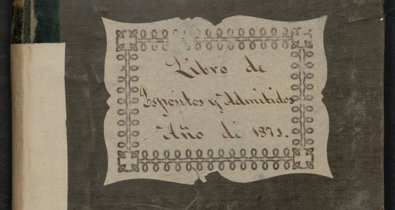 Libro de
Espositos y Admitidos
Año de 1871.